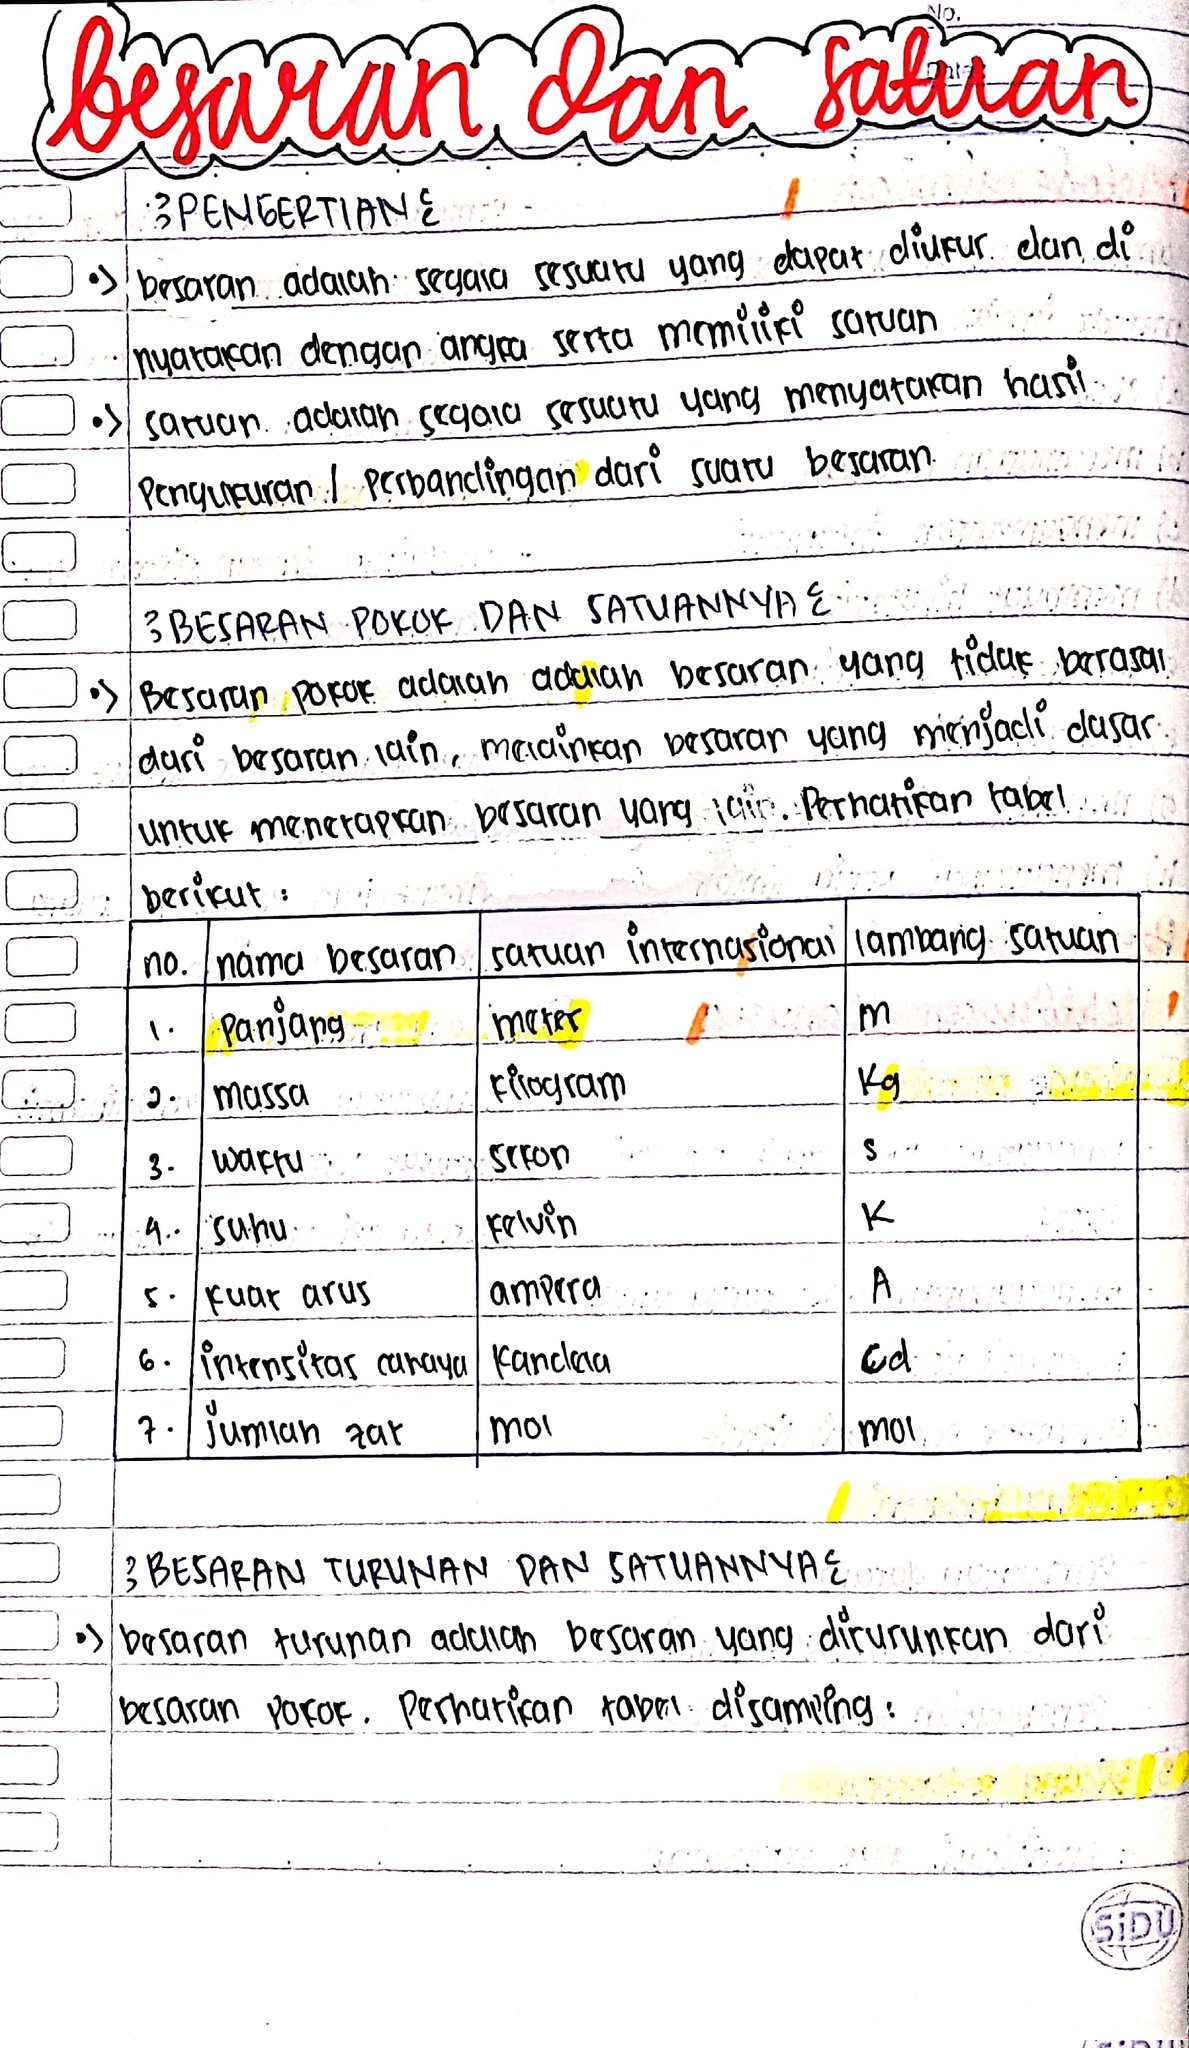 No.
Date:
Besaran dan Satuan
PENGERTIAN
•> besaran adalah segala sesuatu yang dapat diukur dan di
nyatakan dengan angka serta memiliki satuan
•> satuan adalah segala sesuatu yang menyatakan hasil
Pengukuran / Perbandingan dari suatu besaran.
BESARAN POKOK DAN SATUANNYA
•> Besaran pokok adalah adalah besaran yang tidak berasal
dari besaran lain, melainkan besaran yang menjadi dasar
untuk menetapkan besaran yang lain. Perhatikan tabel
berikut :
no. nama besaran satuan internasional lambang satuan
1. Panjang meter m
2. massa kilogram Kg
3. waktu sekon s
4. suhu kelvin K
5. kuat arus ampera A
6. intensitas cahaya Kandela Cd
7. jumlah zat mol mol
BESARAN TURUNAN DAN SATUANNYA
•> besaran turunan adalah besaran yang diturunkan dari
besaran pokok. Perhatikan tabel disamping :
SiDU
SiDU